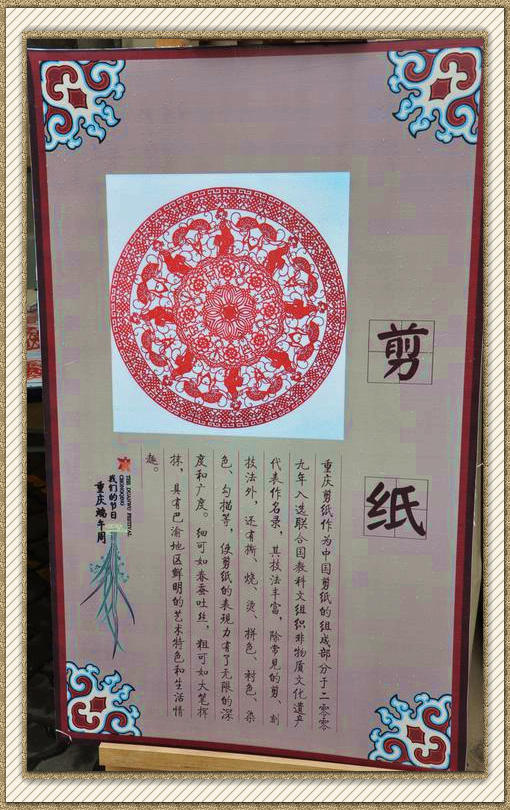 剪
纸
重庆剪纸作为中国剪纸的组成部分于二零零
九年入选联合国教科文组织非物质文化遗产
代表作名录，其技法丰富，除常见的剪、刻
技法外，还有撕、烧、烫、拼色、衬色、染
色、勾描等，使剪纸的表现力有了无限的深
度和广度。细可如春蚕吐丝，粗可如大笔挥
抹，具有巴渝地区鲜明的艺术特色和生活情
趣。
THE DUANWU FESTIVAL
CHONGQING
我们的节日
重庆端午周